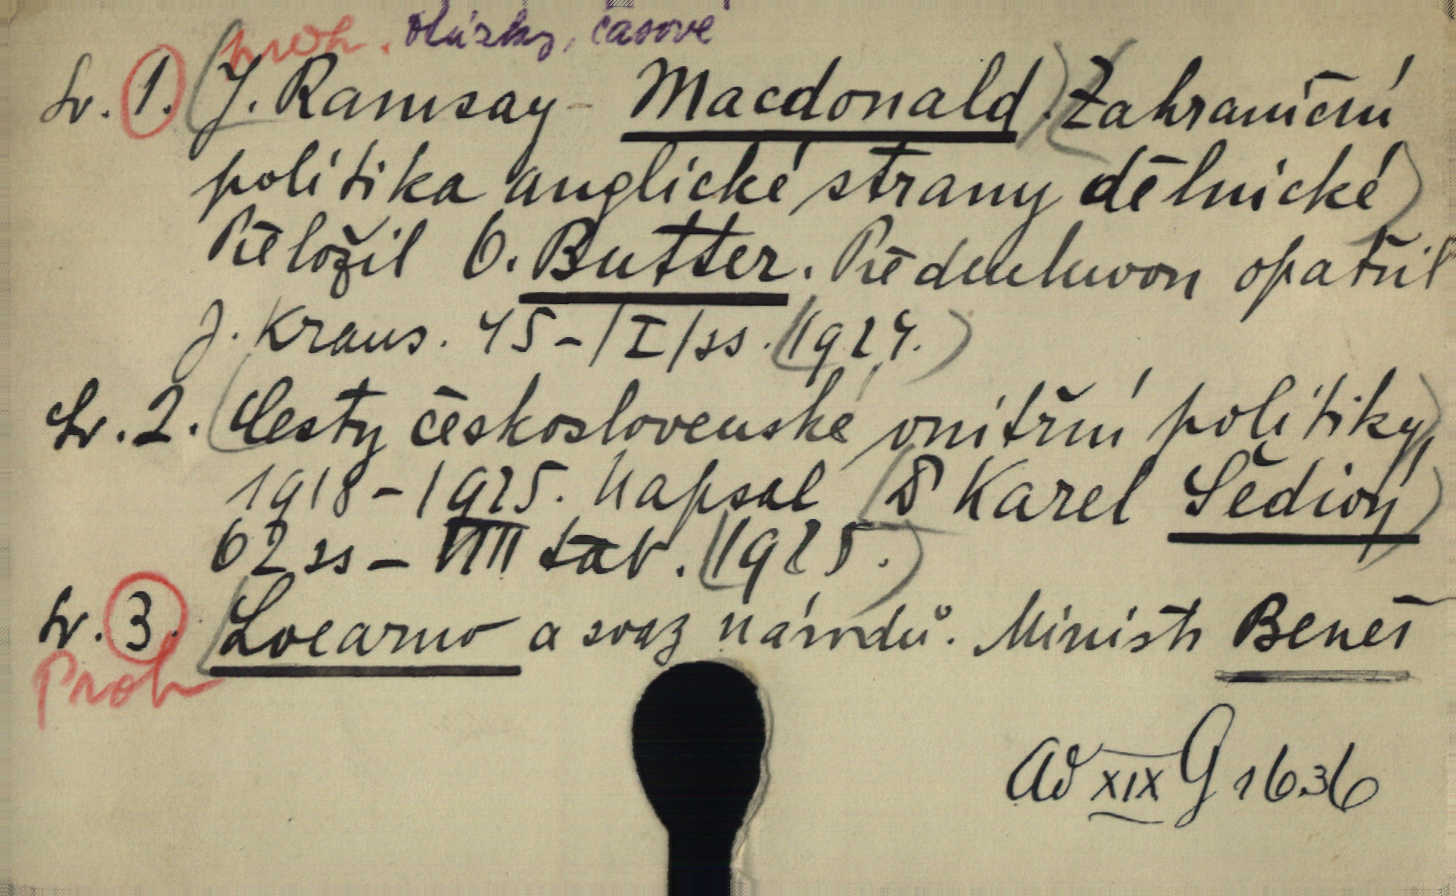 proh. Otázky, časové
Sv. 1. J. Ramsay Macdonald. Zahraniční
politika anglické strany dělnické
Přeložil O. Butter. Předmluvou opatřil
J. Kraus. 45-/I/ss. (1924.)
Sv. 2. Cesty československé vnitřní politiky,
1918-1925. Napsal Dr Karel Šedivý
62 ss - VIII tab. (1925.)
Sv. 3. Locarno a svaz národů. Ministr Beneš
Proh
Ad XIX G 1636